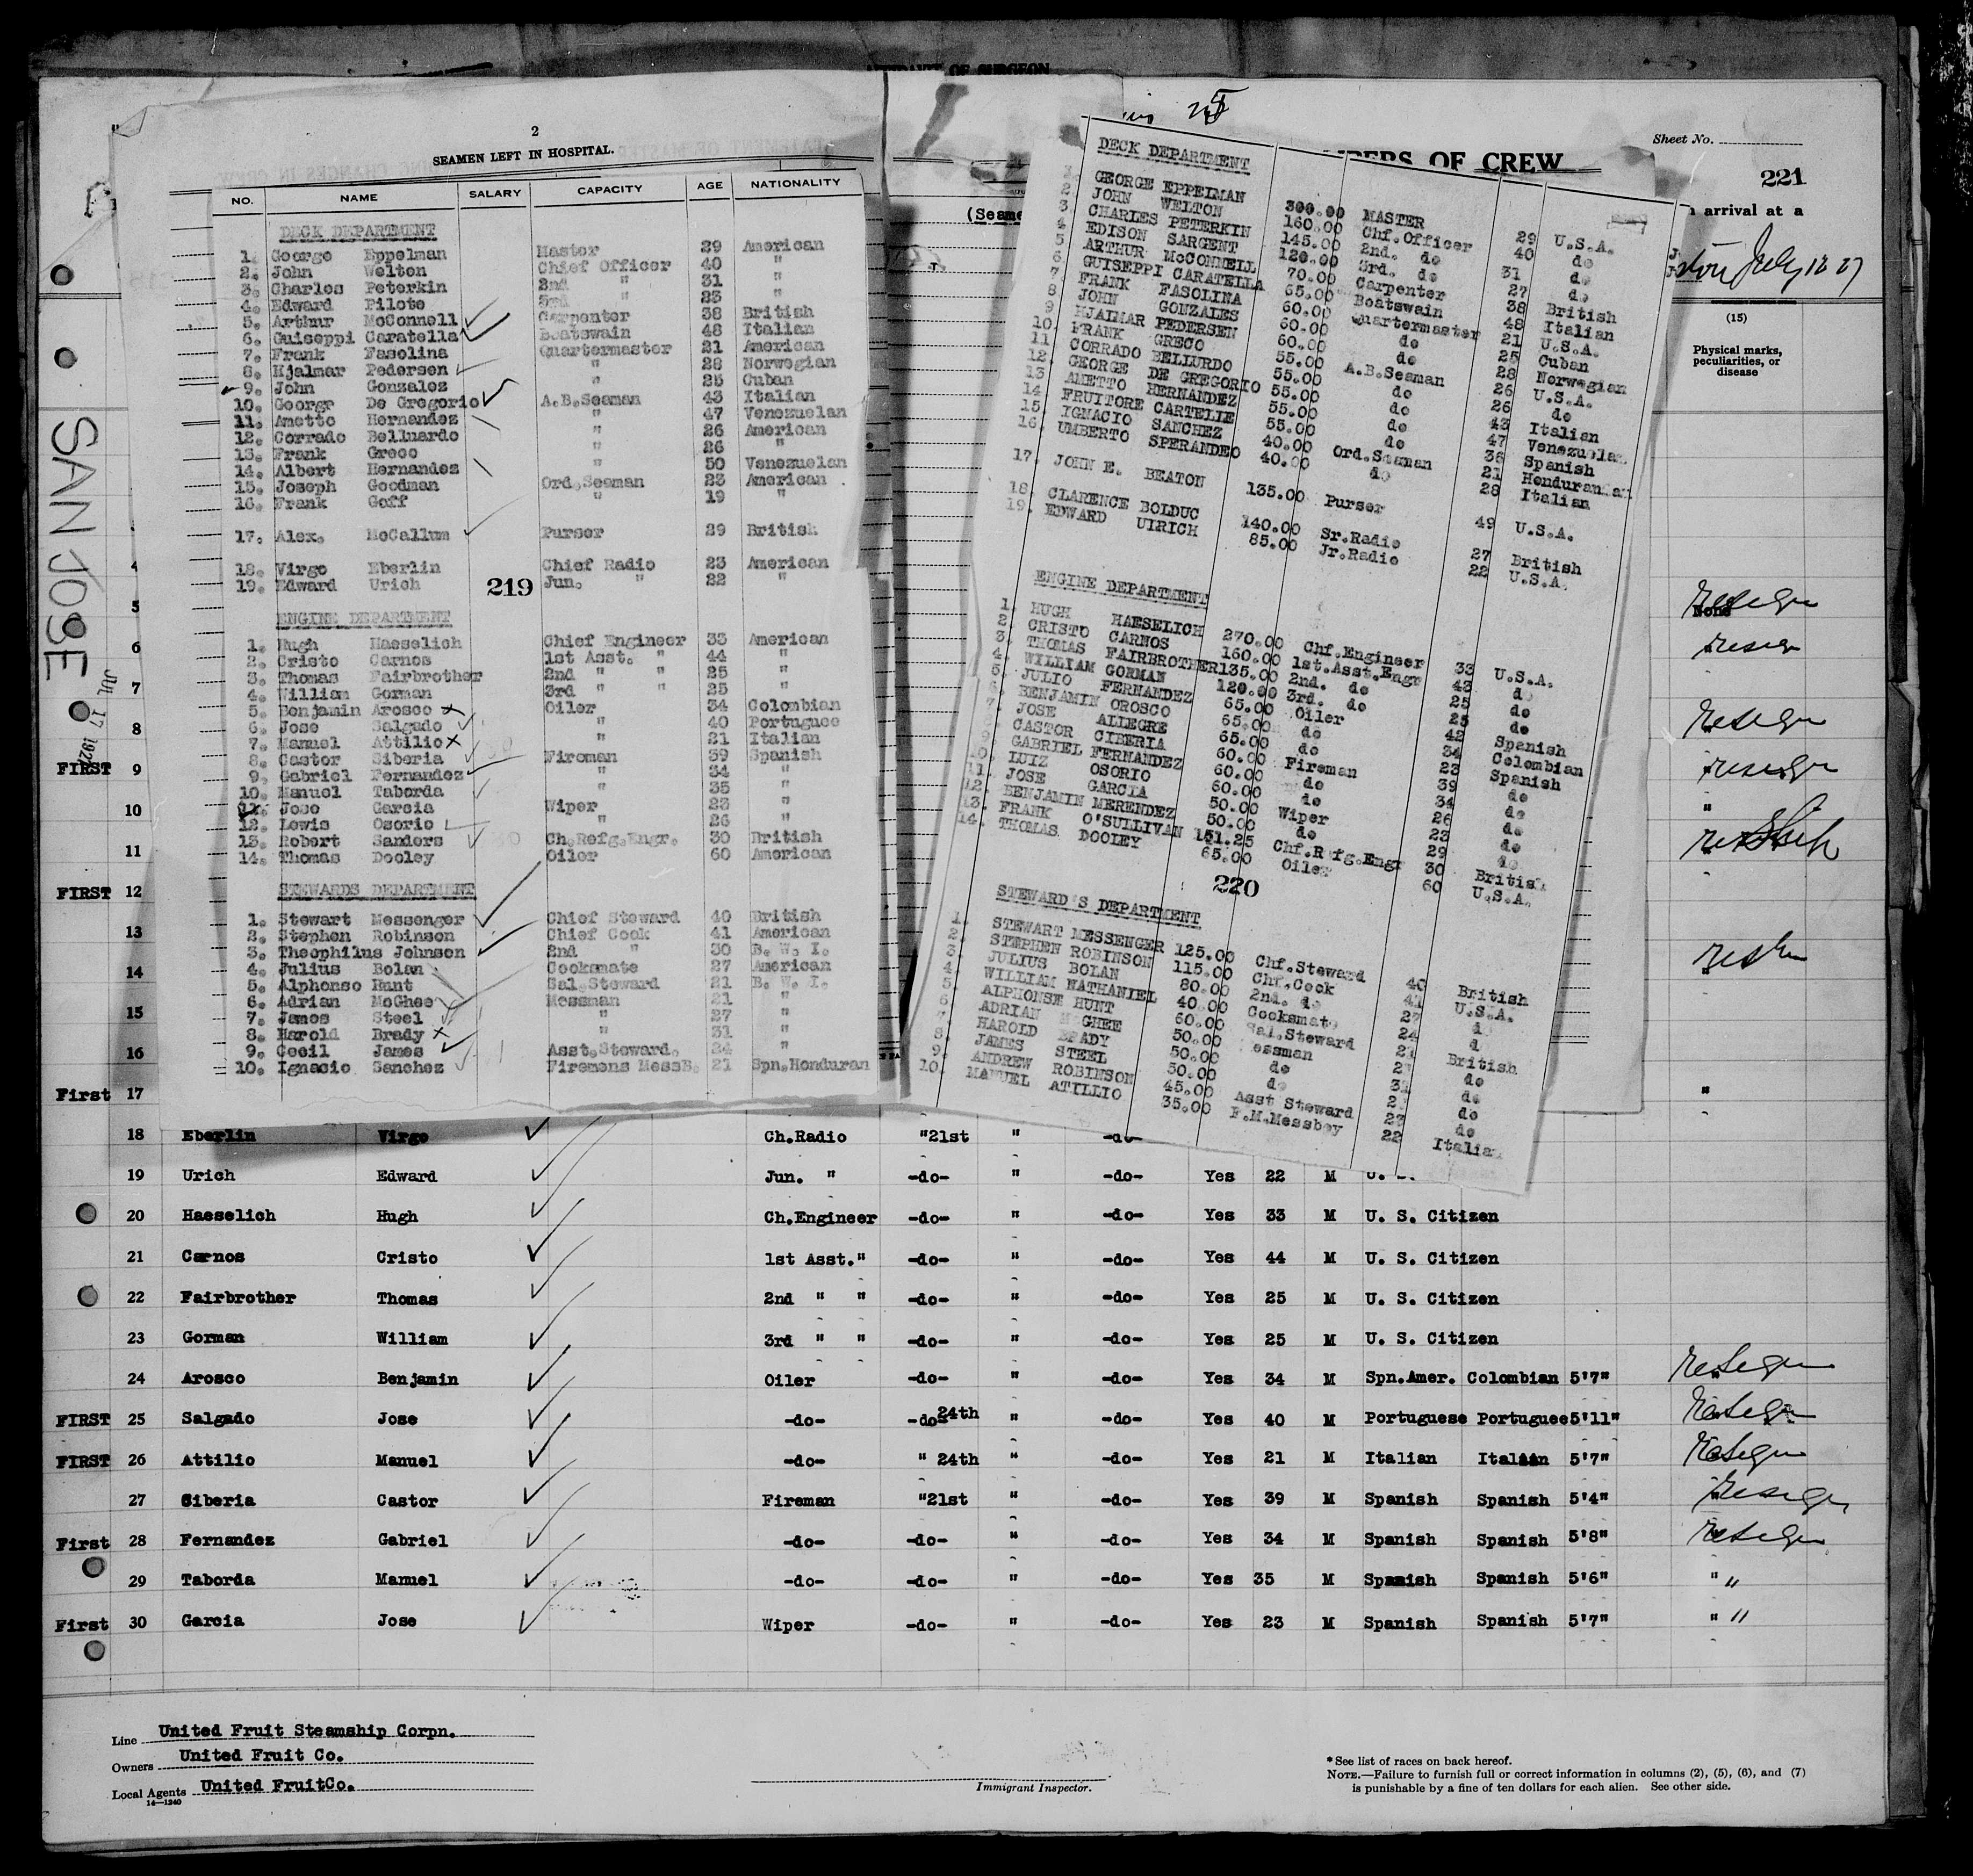 2
SEAMEN LEFT IN HOSPITAL.
NO. NAME SALARY CAPACITY AGE NATIONALITY
DECK DEPARTMENT
1. George Eppelman Master 29 American
2. John Welton Chief Officer 40 "
3. Charles Peterkin 2nd " 31 "
4. Edward Pilote 3rd " 23 "
5. Arthur McConnell Carpenter 38 British
6. Guiseppi Caratella Boatswain 48 Italian
7. Frank Fasolina Quartermaster 21 American
8. Hjalmar Pedersen " 28 Norwegian
9. John Gonzalez " 25 Cuban
10. Georgr De Gregorio A.B.Seaman 43 Italian
11. Ametto Hernandez " 47 Venezuelan
12. Corrado Belluardo " 26 American
13. Frank Greco " 26 "
14. Albert Hernandez " 50 Venezuelan
15. Joseph Goodman Ord.Seaman 23 American
16. Frank Goff " 19 "
17. Alex. McCallum Purser 29 British
18. Virgo Eberlin Chief Radio 23 American
19. Edward Urich Jun. " 22 "
219
ENGINE DEPARTMENT
1. Hugh Haeselich Chief Engineer 33 American
2. Cristo Carnos 1st Asst. " 44 "
3. Thomas Fairbrother 2nd " " 25 "
4. William Gorman 3rd " " 25 "
5. Benjamin Arosco Oiler 34 Colombian
6. Jose Salgado " 40 Portuguee
7. Manuel Attilio " 21 Italian
8. Castor Siberia Fireman 39 Spanish
9. Gabriel Fernandez " 34 "
10. Manuel Taborda " 35 "
11. Jose Garcia Wiper 23 "
12. Lewis Osorio " 26 "
13. Robert Sanders Ch.Refg.Engr. 30 British
14. Thomas Dooley Oiler 60 American
STEWARDS DEPARTMENT
1. Stewart Messenger Chief Steward 40 British
2. Stephen Robinson Chief Cook 41 American
3. Theophilus Johnson 2nd " 30 B. W. I.
4. Julius Bolan Cooksmate 27 American
5. Alphonso Hunt Sal.Steward 21 B. W. I.
6. Adrian McGhee Messman 21 "
7. James Steel " 27 "
8. Harold Brady " 31 "
9. Cecil James Asst.Steward. 24 "
10. Ignacio Sanchez Firemens MessB. 21 Spn.Honduran
DECK DEPARTMENT
GEORGE EPPELMAN 300.00 MASTER 29 U.S.A.
2. JOHN WELTON 160.00 Chf.Officer 40 do
3. CHARLES PETERKIN 145.00 2nd. do 31 do
EDISON SARGENT 120.00 3rd. do 27 do
5 ARTHUR McCONNELL 70.00 Carpenter 38 British
6. GUISEPPI CARATELLA 65.00 Boatswain 48 Italian
7. FRANK FASOLINA 60.00 Quartermaster 21 U.S.A.
8 JOHN GONZALES 60.00 do 25 Cuban
9 HJALMAR PEDERSEN 60.00 do 28 Norwegian
10. FRANK GRECO 55.00 A.B.Seaman 26 U.S.A.
11 CORRADO BELLURDO 55.00 do 26 do
12. GEORGE DE GREGORIO 55.00 do 43 Italian
13 AMETTO HERNANDEZ 55.00 do 47 Venezuelan
14. FRUITORE CARTELIE 55.00 do 36 Spanish
15. IGNACIO SANCHEZ 40.00 Ord.Seaman 21 Honduranian
16. UMBERTO SPERANDEO 40.00 do 28 Italian
17. JOHN E. BEATON 135.00 Purser 49 U.S.A.
18. CLARENCE BOLDUC 140.00 Sr.Radio 27 British
19. EDWARD UIRICH 85.00 Jr.Radio 22 U.S.A.
ENGINE DEPARTMENT
1. HUGH HAESELICH 270.00 Chf.Engineer 33 U.S.A.
2. CRISTO CARNOS 160.00 1st.Asst.Engr 43 do
3. THOMAS FAIRBROTHER 135.00 2nd. do 25 do
4. WILLIAM GORMAN 120.00 3rd. do 25 do
5. JULIO FERNANDEZ 65.00 Oiler 42 Spanish
6. BENJAMIN OROSCO 65.00 do 34 Colombian
7. JOSE ALLEGRE 65.00 do 23 Spanish
8 CASTOR CIBERIA 60.00 Fireman 39 do
9 GABRIEL FERNANDEZ 60.00 do 34 do
10. LUIZ OSORIO 60.00 do 26 do
11. JOSE GARCIA 50.00 Wiper 23 do
12. BENJAMIN MERENDEZ 50.00 do 29 do
13. FRANK O'SULLIVAN 151.25 Chf.Refg.Engr 30 British
14. THOMAS DOOLEY 65.00 Oiler 60 U.S.A.
220
STEWARD'S DEPARTMENT
1. STEWART MESSENGER 125.00 Chf.Steward 40 British
2. STEPHEN ROBINSON 115.00 Chf.Cook 41 U.S.A.
3 JULIUS BOLAN 80.00 2nd. do 27 d
4. WILLIAM NATHANIEL 40.00 Cooksmate 24 d
5. ALPHONSE HUNT 60.00 Sal.Steward 21 British
6 ADRIAN M GHEE 50.00 essman 2 do
7. HAROLD BRADY 50.00 do 31 do
8. JAMES STEEL 50.00 do 2 do
9. ANDREW ROBINSON 45.00 Asst Steward 23 do
10. MANUEL ATILLIO 35.00 F.M.Messboy 22 Italian
OF SURGEON
BERS OF CREW
Sheet No.
221
arrival at a
July 18 27
(15)
Physical marks, peculiarities, or disease
(Seame
None
SAN JOSE
JUL 17 192
4
5
6
7
8
FIRST 9
10
11
FIRST 12
13
14
15
16
First 17
18 Eberlin Virgo Ch.Radio "21st " -do-
19 Urich Edward Jun. " -do- " -do- Yes 22 M
20 Haeselich Hugh Ch.Engineer -do- " -do- Yes 33 M U. S. Citizen
21 Carnos Cristo 1st Asst." -do- " -do- Yes 44 M U. S. Citizen
22 Fairbrother Thomas 2nd " " -do- " -do- Yes 25 M U. S. Citizen
23 Gorman William 3rd " " -do- " -do- Yes 25 M U. S. Citizen
24 Arosco Benjamin Oiler -do- " -do- Yes 34 M Spn.Amer. Colombian 5'7"
FIRST 25 Salgado Jose -do- -do- 24th " -do- Yes 40 M Portuguese Portuguee 5'11"
FIRST 26 Attilio Manuel -do- " 24th " -do- Yes 21 M Italian Italian 5'7"
27 Siberia Castor Fireman "21st " -do- Yes 39 M Spanish Spanish 5'4"
First 28 Fernandez Gabriel -do- -do- " -do- Yes 34 M Spanish Spanish 5'8"
29 Taborda Manuel -do- -do- " -do- Yes 35 M Spanish Spanish 5'6" " "
First 30 Garcia Jose Wiper -do- " -do- Yes 23 M Spanish Spanish 5'7" " "
Line United Fruit Steamship Corpn.
Owners United Fruit Co.
Local Agents United FruitCo.
14—1240
Immigrant Inspector.
* See list of races on back hereof.
NOTE.—Failure to furnish full or correct information in columns (2), (5), (6), and (7)
is punishable by a fine of ten dollars for each alien. See other side.